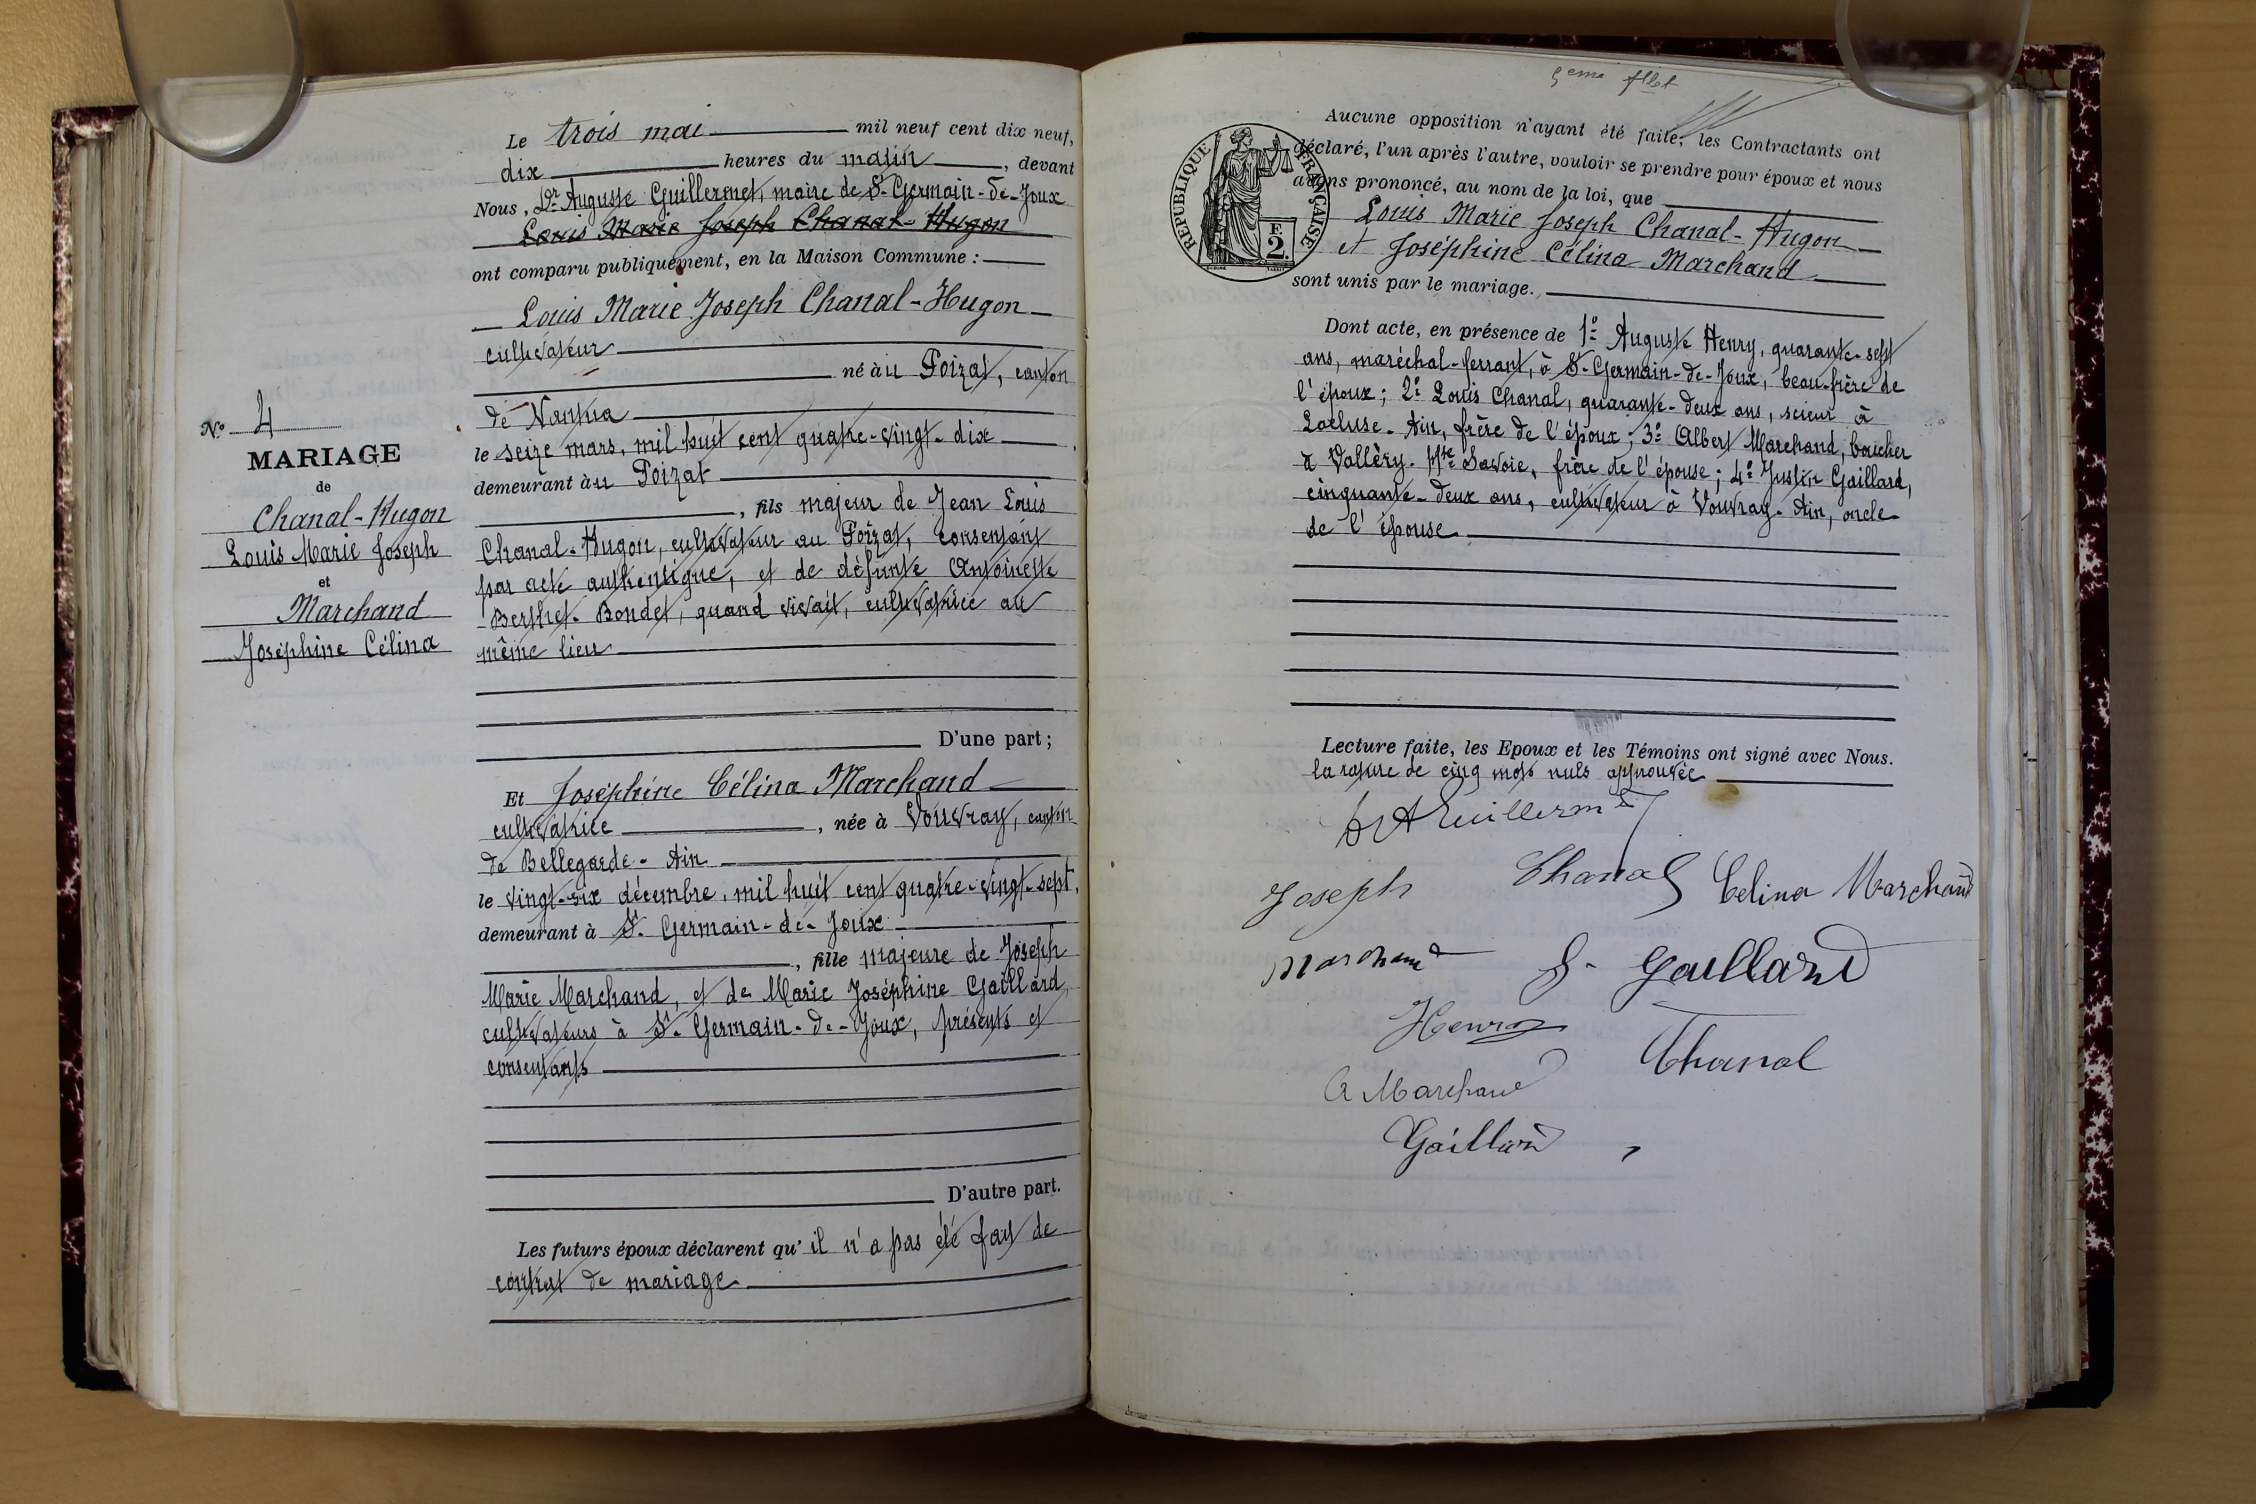 N.o 4
MARIAGE
de
Chanal-Hugon
Louis Marie Joseph
et
Marchand
Joséphine Célina
Le trois mai mil neuf cent dix neuf,
dix heures du matin, devant
Nous, Dr. Auguste Guillermet, maire de St-Germain-de-Joux
Louis Marie Joseph Chanal-Hugon
ont comparu publiquement, en la Maison Commune :
Louis Marie Joseph Chanal-Hugon
cultivateur
né au Poizat, canton
de Nantua
le seize mars, mil huit cent quatre-vingt-dix
demeurant au Poizat
, fils majeur de Jean Louis
Chanal-Hugon, cultivateur au Poizat, consentant
par acte authentique, et de défunte Antoinette
Berthet-Bondet, quand vivait, cultivatrice au
même lieu
D'une part ;
Et Joséphine Célina Marchand
cultivatrice, née à Vouvray, canton
de Bellegarde-Ain
le vingt-six décembre, mil huit cent quatre-vingt-sept,
demeurant à St-Germain-de-Joux
, fille majeure de Joseph
Marie Marchand, et de Marie Joséphine Gaillard,
cultivateurs à St-Germain-de-Joux, présents et
consentants
D'autre part.
Les futurs époux déclarent qu'il n'a pas été fait de
contrat de mariage
5eme fllet
RÉPUBLIQUE FRANÇAISE
F.
2.
Aucune opposition n'ayant été faite, les Contractants ont
déclaré, l'un après l'autre, vouloir se prendre pour époux et nous
avons prononcé, au nom de la loi, que
Louis Marie Joseph Chanal-Hugon
et Joséphine Célina Marchand
sont unis par le mariage.
Dont acte, en présence de 1o Auguste Henry, quarante-sept
ans, maréchal-ferrant, à St-Germain-de-Joux, beau-frère de
l'époux ; 2o Louis Chanal, quarante-deux ans, scieur à
Lacluse-Ain, frère de l'époux ; 3o Albert Marchand, boucher
à Vallèry-Hte Savoie, frère de l'épouse ; 4o Justin Gaillard,
cinquante-deux ans, cultivateur à Vouvray-Ain, oncle
de l'épouse
Lecture faite, les Epoux et les Témoins ont signé avec Nous.
la rature de cinq mots nuls approuvée
Dr A Guillermet
Joseph Chanal Celina Marchand
Marchand J. Gaillard
Henry
Chanal
A Marchand
Gaillard